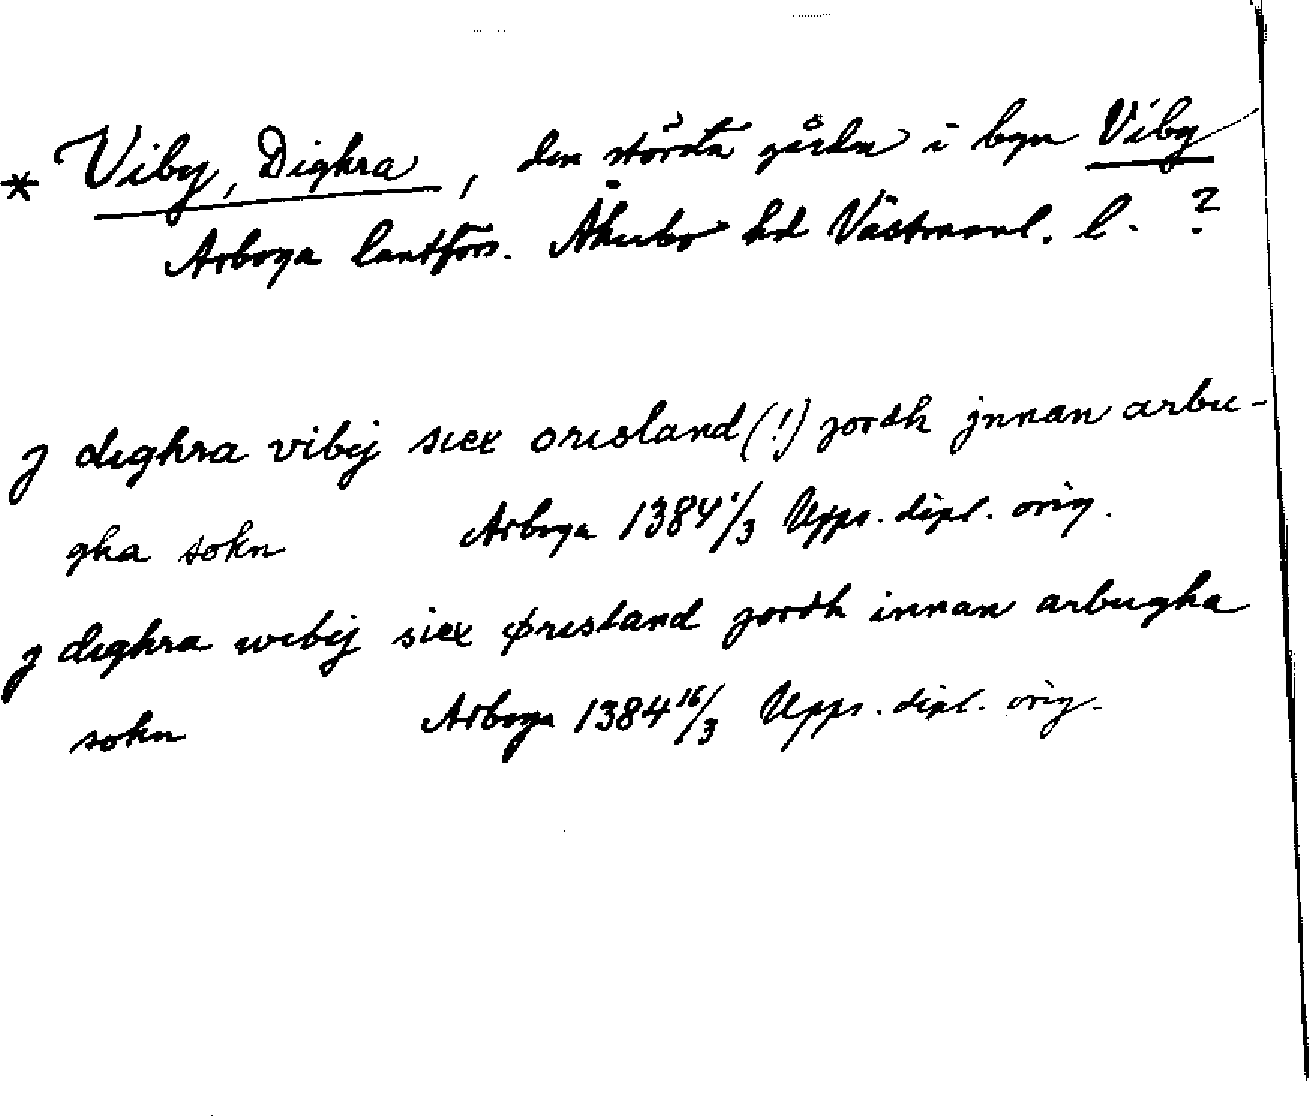 * Viby, Dighra, den största gården i byn Viby
Arboga lantförs. Åkerbo hd Västmanl. l. ?
j dighra vibij siex orisland (!) jordh jnnan arbu-
gha sokn Arboga 1384 1/3 Upps. dipl. orig.
j dighra wibij siex ørisland jordh innan arbugha
sokn Arboga 1384 16/3 Upps. dipl. orig.